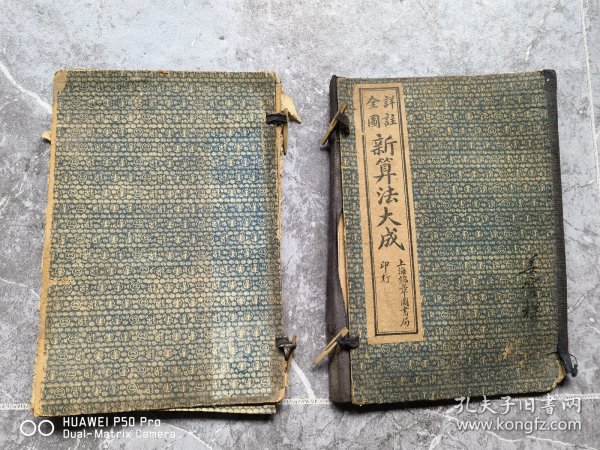 詳註
全圖
新算法大成
上海錦章圖書局
印行
HUAWEI P50 Pro
Dual-Matrix Camera
孔夫子旧书网
www.kongfz.com